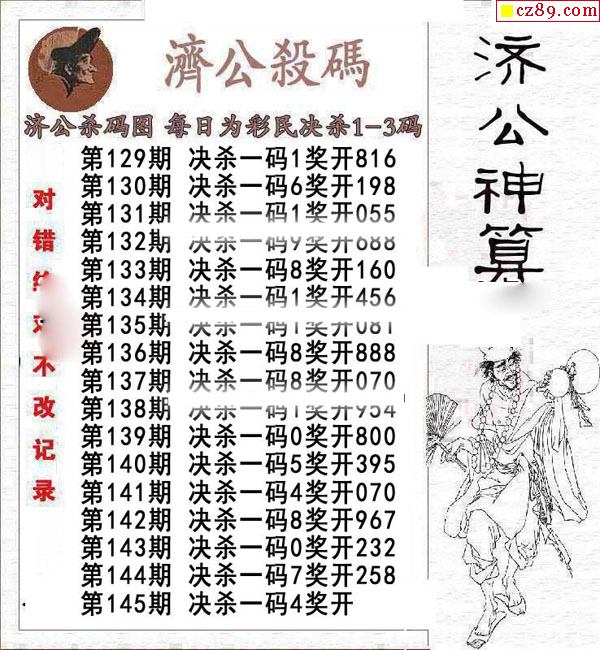 cz89.com
濟公殺碼
济公杀码图 每日为彩民决杀1-3码
第129期 决杀一码1奖开816
第130期 决杀一码6奖开198
第131期 决杀一码1奖开055
第132期 决杀一码9奖开688
第133期 决杀一码8奖开160
第134期 决杀一码1奖开456
第135期 决杀一码1奖开081
第136期 决杀一码8奖开888
第137期 决杀一码8奖开070
第138期 决杀一码1奖开954
第139期 决杀一码0奖开800
第140期 决杀一码5奖开395
第141期 决杀一码4奖开070
第142期 决杀一码8奖开967
第143期 决杀一码0奖开232
第144期 决杀一码7奖开258
第145期 决杀一码4奖开
对错 不改记录
济公神算